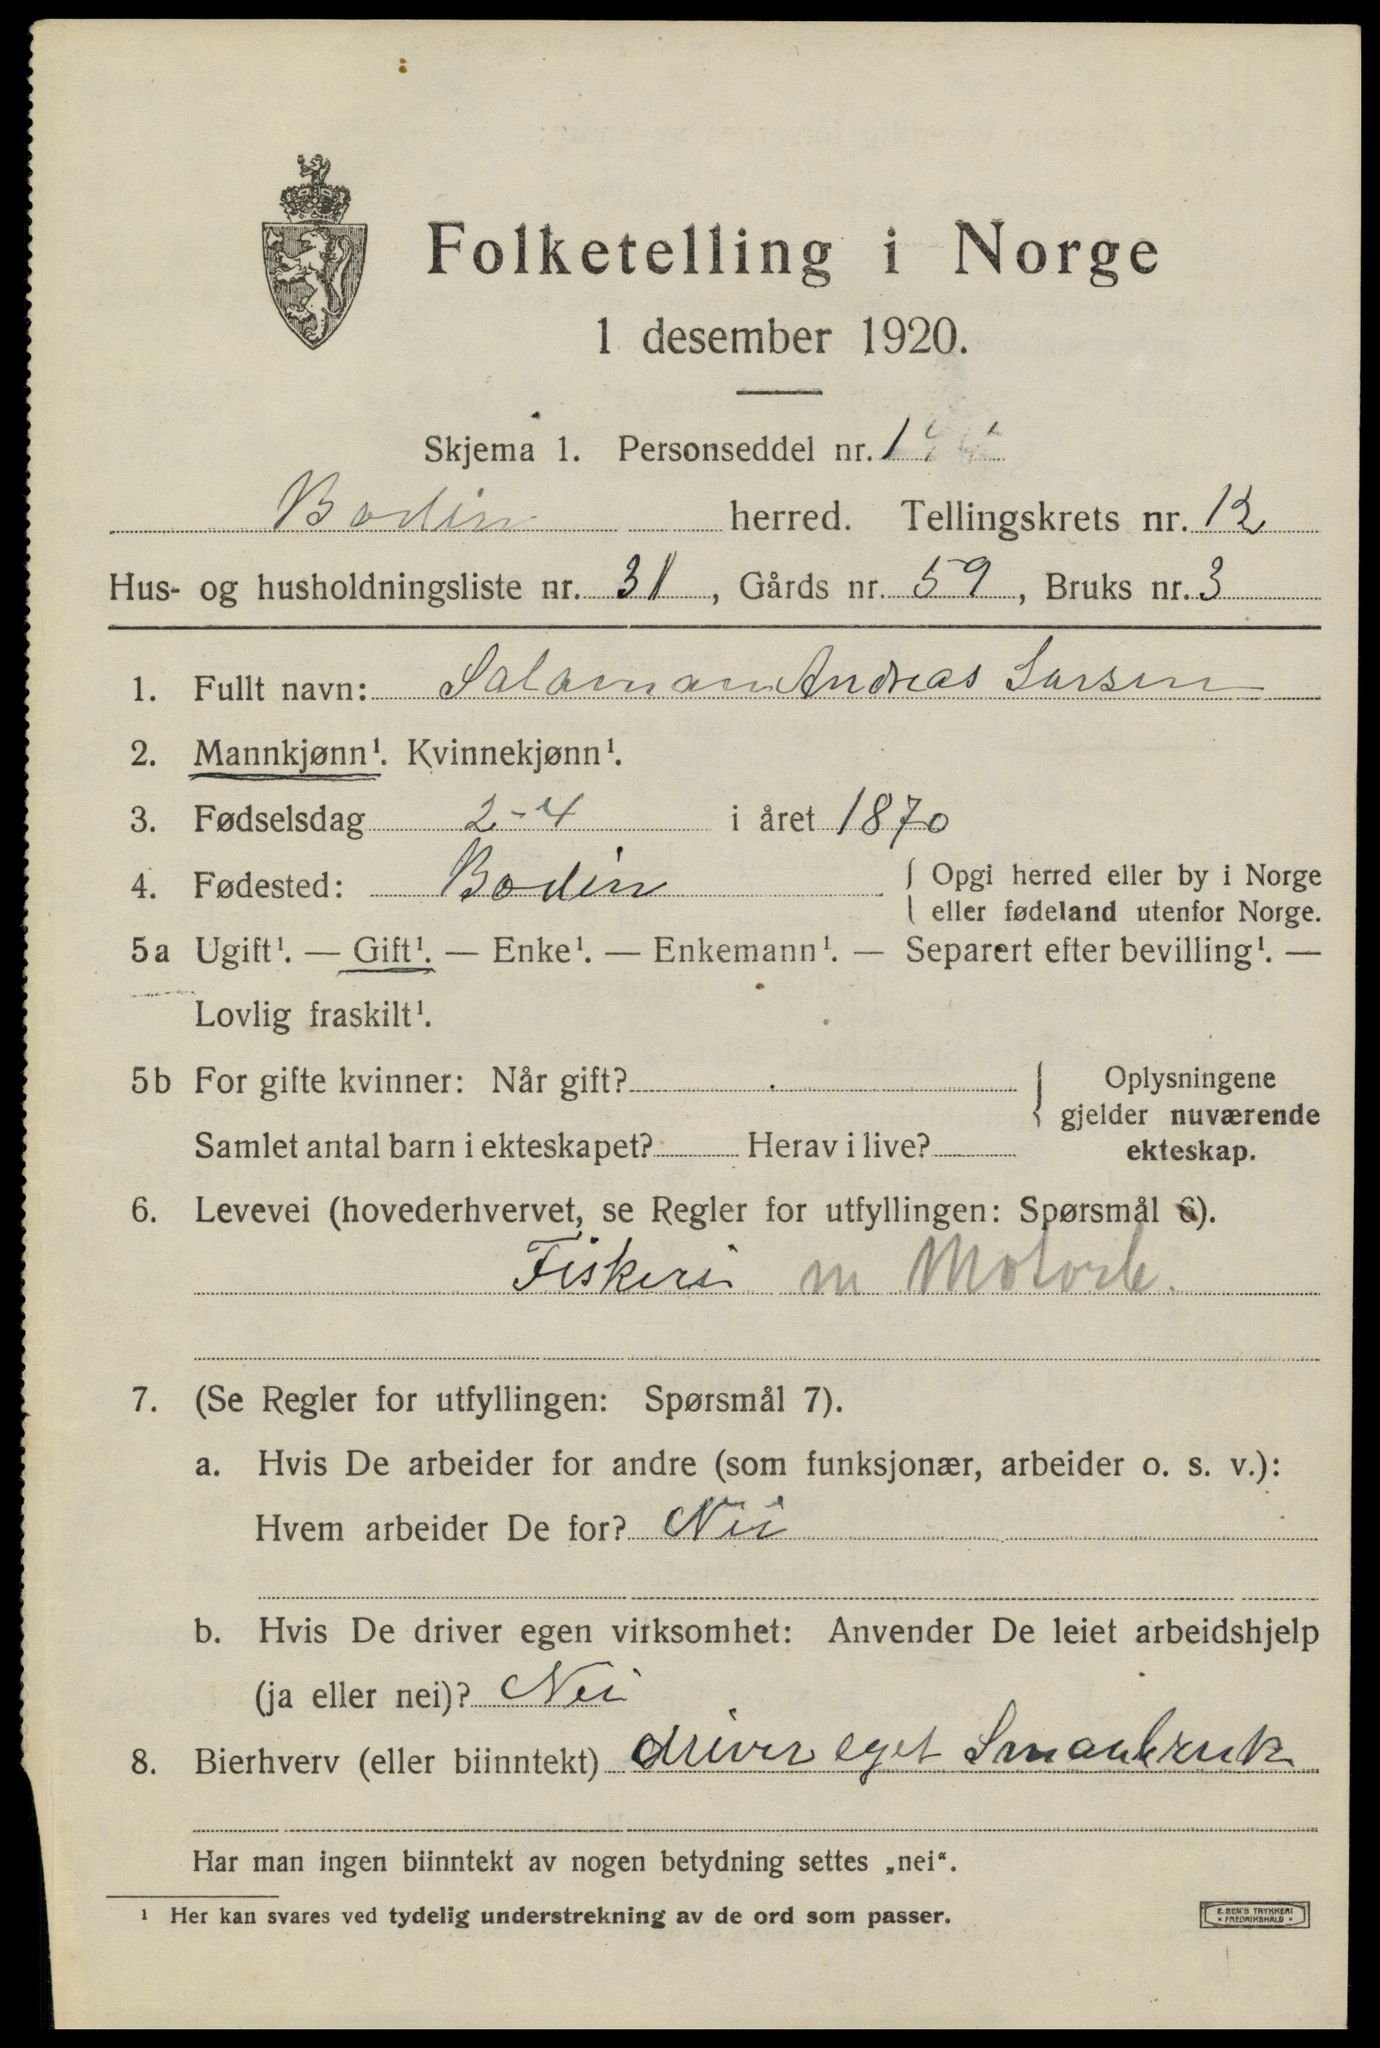 Folketelling i Norge
1 desember 1920.
Skjema 1. Personseddel nr. 1
Bodin herred. Tellingskrets nr. 12
Hus- og husholdningsliste nr. 31, Gårds nr. 59, Bruks nr. 3
1. Fullt navn: Salamon Andreas Larsen
2. Mannkjønn¹. Kvinnekjønn¹.
3. Fødselsdag 2-4 i året 1870
4. Fødested: Bodin { Opgi herred eller by i Norge
eller fødeland utenfor Norge.
5a Ugift¹. — Gift¹. — Enke¹. — Enkemann¹. — Separert efter bevilling¹. —
Lovlig fraskilt¹.
5b For gifte kvinner: Når gift? { Oplysningene
gjelder nuværende
Samlet antal barn i ekteskapet? Herav i live? ekteskap.
6. Levevei (hovederhvervet, se Regler for utfyllingen: Spørsmål 6).
Fiskeri m Motorb.
7. (Se Regler for utfyllingen: Spørsmål 7).
a. Hvis De arbeider for andre (som funksjonær, arbeider o. s. v.):
Hvem arbeider De for? Nei
b. Hvis De driver egen virksomhet: Anvender De leiet arbeidshjelp
(ja eller nei)? Nei
8. Bierhverv (eller biinntekt) driver eget Smaabruk
Har man ingen biinntekt av nogen betydning settes „nei“.
¹ Her kan svares ved tydelig understrekning av de ord som passer.
E. SEM'S TRYKKERI
• FREDRIKSHALD •